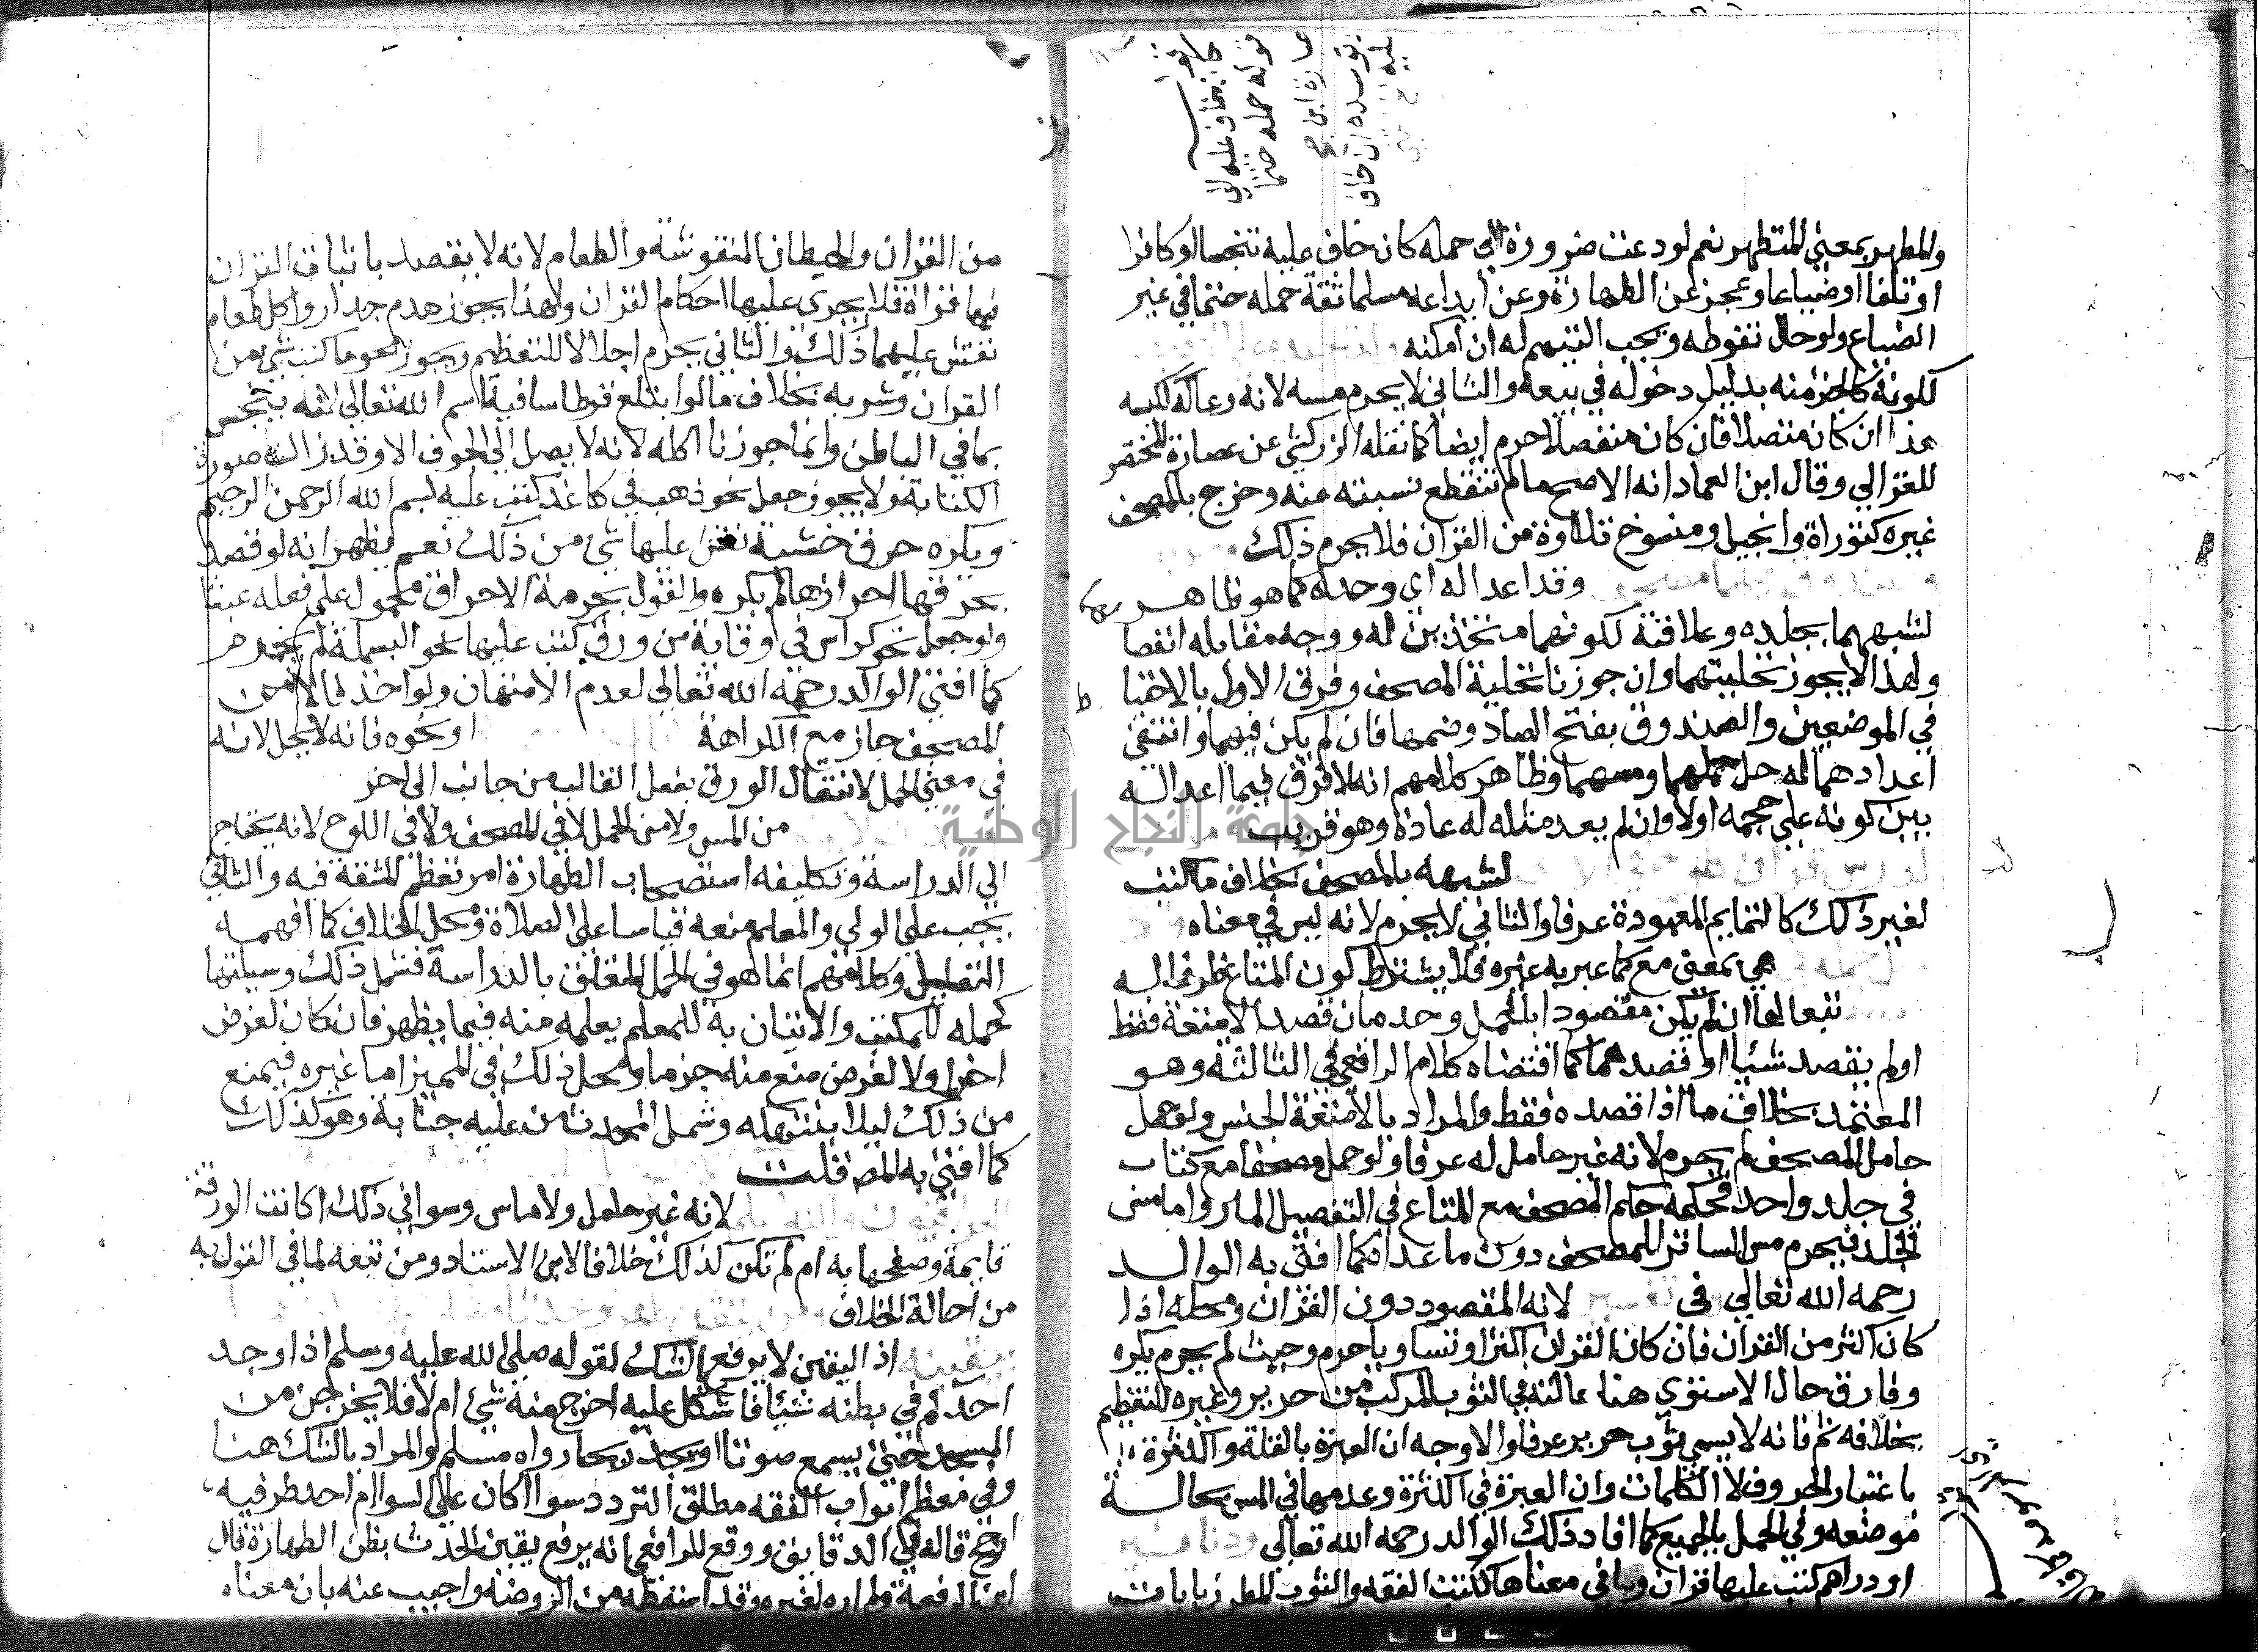 والمطهر بمعني المتطهر نعم لو دعت ضرورة الي حمله كان خاف عليه تنجسا او كافرا
او تلفا او ضياعا وعجز عن الطهارة وعن ايداعه مسلما ثقة حمله حتما في غير
الضياع ولو حال تغوطه ويجب التيمم له ان امكنه
لكونه كالجزء منه بدليل دخوله في بيعه والثاني لا يحرم مسه لانه وعا له ككيسه
هذا ان كان متصلا فان كان منفصلا حرم ايضا كما نقله الزركشي عن عصارة المختصر
للغزالي وقال ابن العماد انه الاصح ما لم تنقطع نسبته عنه وخرج بالمصحف
غيره كتوراة وانجيل ومنسوخ تلاوة من القران فلا يحرم ذلك
وقد اعدا له اي وحده كما هو ظاهر
لشبههما بجلده وعلاقة لكونهما متخذين له ووجه مقابله انفصا
ولهذا لا يجوز تحليتهما وان جوزنا تحلية المصحف وفرق الاول بالاحتيا
في الموضعين والصندوق بفتح الصاد وضمها فان لم يكن فيهما وانتفي
اعدادهما له حل حملهما ومسهما وظاهر كلامهم انه لا فرق فيما اعد له
بين كونه علي حجمه اولا وان لم يعد مثله له عادة وهو قريب
لشبهه بالمصحف بخلاف ما كتب
لغير ذلك كالتمايم المعهودة عرفا والثاني لا يحرم لانه ليس في معناه
هي بمعني مع كما عبر به غيره فلا يشترط كون المتاع ظرفا له
تبعا لها ان لم يكن مقصودا بالحمل وحده بان قصد الامتعة فقط
او لم يقصد شيا او قصدهما كما اقتضاه كلام الرافعي في الثالثة وهو
المعتمد بخلاف ما اذا قصده فقط والمراد بالامتعة الجنس ولو حمل
حامل المصحف لم يحرم لانه غير حامل له عرفا ولو حمل مصحفا مع كتاب
في جلد واحد فحكمه حكم المصحف مع المتاع في التفصيل المار واما مس
الجلد فيحرم مس الساتر للمصحف دون ما عداه كما افتي به الوالد
رحمه الله تعالي في لانه المقصود دون القران ومحله اذا
كان اكثر من القران فان كان القران اكثر او تساويا حرم وحيث لم يحرم يكره
وفارق حال الاستوي هنا حالته في الثوب المركب من حرير وغيره للتعظيم
بخلافه ثم فانه لا يسمي ثوب حرير عرفا والاوجه ان العبرة بالقلة والكثرة
باعتبار الحروف لا الكلمات وان العبرة في الكثرة وعدمها في المس بحالة
موضعه وفي الحمل بالجميع كما افاد ذلك الوالد رحمه الله تعالي
او دراهم كتب عليها قران وما في معناها ككتب الفقه والثوب المطرز بايات
من القران والحيطان المنقوشة والطعام لانه لا يقصد باثبات القران
فيها قراة فلا يجري عليها احكام القران ولهذا يجوز هدم جدار واكل طعام
نقش عليهما ذلك والثاني يحرم اجلالا للتعظيم ويجوز محو ما كتب شي من
القران وشربه بخلاف ما لو ابتلع قرطاسا فيه اسم الله تعالي لانه يتنجس
بما في الباطن وانما جوزنا اكله لانه لا يصل الي الجوف الا وقد زالت صورة
الكتابة ولا يجوز جعل نحو ذهب في كاغد كتب عليه بسم الله الرحمن الرحيم
ويكره حرق خشبة نقش عليها شي من ذلك نعم يظهر انه لو قصد
بحرقها احرازها لم يكره والقول بحرمة الاحراق محمول علي فعله عبثا
ولو جعل نحو كراس في وقاية من ورق كتب عليها نحو البسملة لم يحرم
كما افتي الوالد رحمه الله تعالي لعدم الامتهان ولو اخذ فالا من
المصحف جاز مع الكراهة او نحوه فانه لا يحل لانه
في معني الحمل لانتقال الورق بفعل القالب من جانب الي اخر
من المس ولا من الحمل لا في المصحف ولا في اللوح لانه يحتاج
الي الدراسة وتكليفه استصحاب الطهارة امر تعظم المشقة فيه والثاني
يجب علي الولي والمعلم منعه قياسا علي الصلاة ومحل الخلاف كما افهمه
التعليل وكلامهم انما هو في الحمل المتعلق بالدراسة فشمل ذلك وسيلتها
كحمله للمكتب والاتيان به للمعلم يعلمه منه فيما يظهر فان كان لغرض
اخر او لا لغرض منع منه جزما ومحل ذلك في المميز اما غيره فيمنع
من ذلك ليلا ينتهكه وشمل المحدث من عليه جنابة وهو كذلك
كما افتي به المص قلت
لانه غير حامل ولا ماس وسوا في ذلك اكانت الورقة
قايمة وصفحها به ام لم تكن كذلك خلافا لابن الاستاد ومن تبعه لما في القول به
من احالة الخلاف
اذ اليقين لا يرفع بالشك لقوله صلي الله عليه وسلم اذا وجد
احدكم في بطنه شيئا فاشكل عليه اخرج منه شي ام لا فلا يخرجن من
المسجد حتي يسمع صوتا او يجد ريحا رواه مسلم والمراد بالشك هنا
وفي معظم ابواب الفقه مطلق التردد سوا اكان علي السوا ام احد طرفيه
ارجح قاله في الدقايق ووقع للرافعي انه يرفع يقين الحدث بظن الطهارة قال
ابن الرفعة ولم اره لغيره وقد اسقطه من الروضة واجيب عنه بان معناه
جامعة النجاح الوطنية